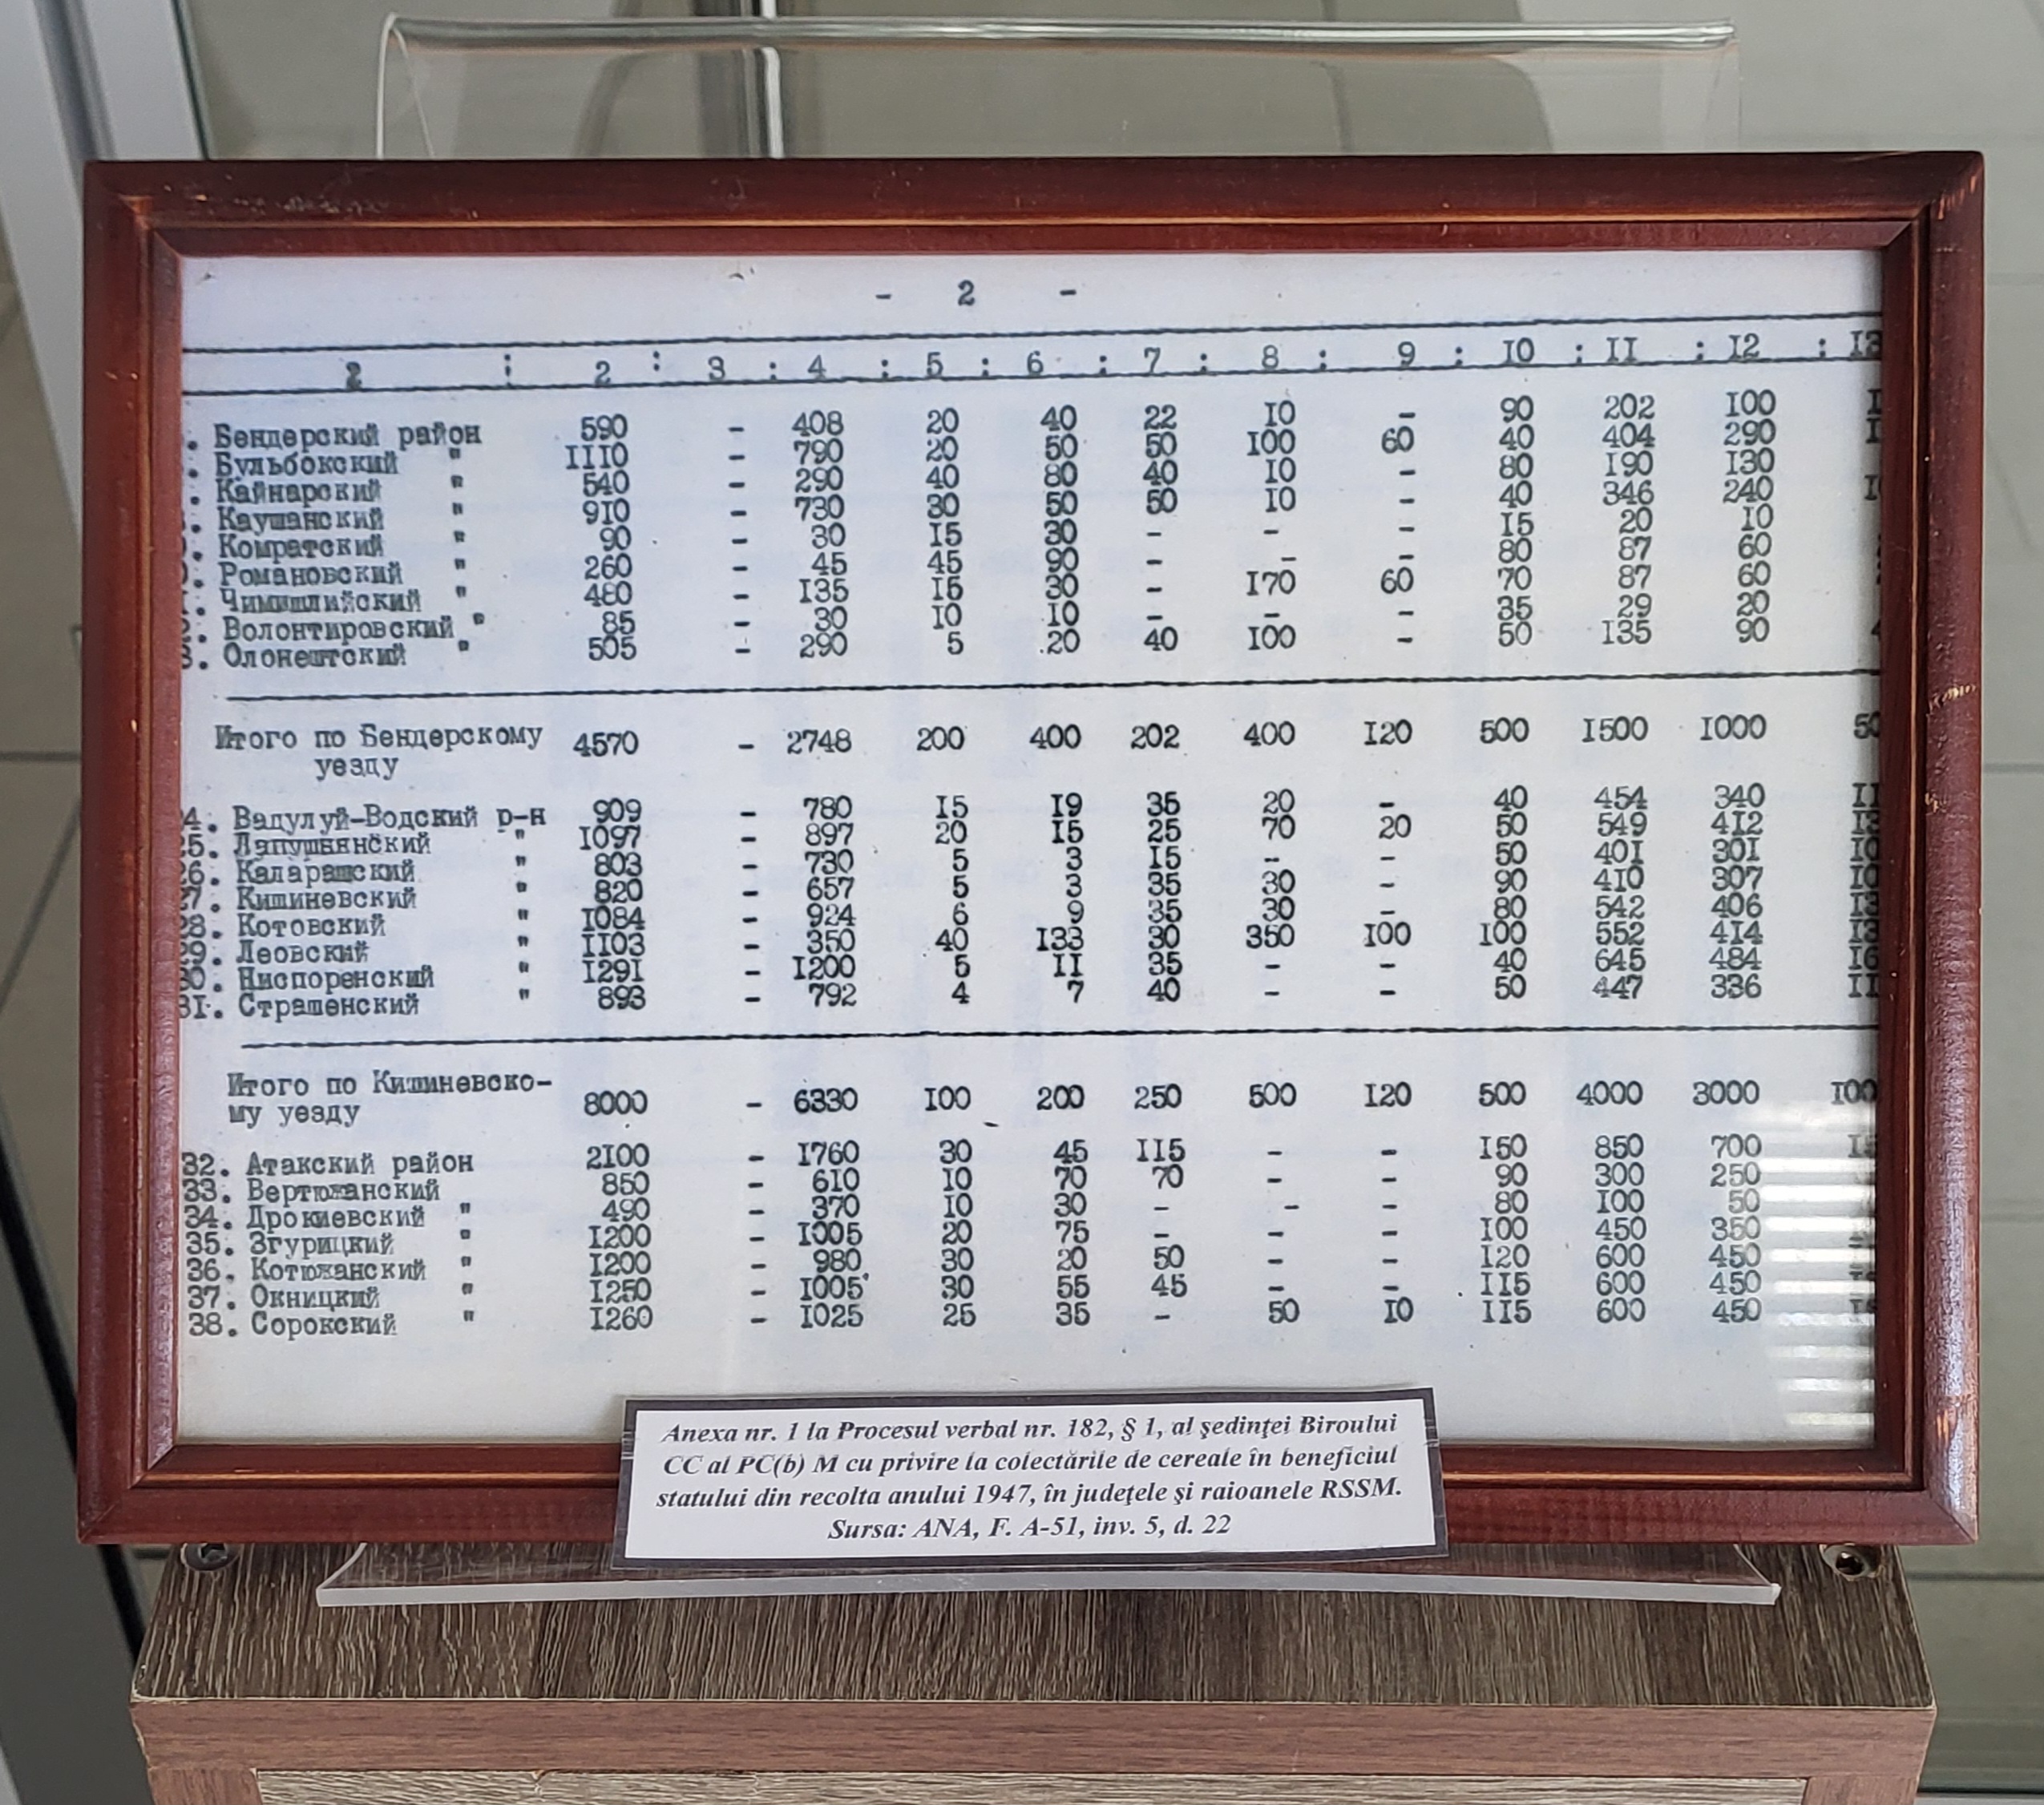 - 2 -
2 : 2 : 3 : 4 : 5 : 6 : 7 : 8 : 9 : IO : II : I2 : I3
. Бендерский район 590 - 408 20 40 22 IO - 90 202 I00
. Бульбокский " III0 - 790 20 50 50 I00 60 40 404 290
. Кайнарский " 540 - 290 40 80 40 I0 - 80 I90 I30
. Каушанский " 9I0 - 730 30 50 50 I0 - 40 346 240
. Комратский " 90 - 30 I5 30 - - - I5 20 I0
. Романовский " 260 - 45 45 90 - - - 80 87 60
. Чимишлийский " 480 - I35 I5 30 - I70 60 70 87 60
. Волонтировский " 85 - 30 I0 I0 - - - 35 29 20
3. Олонештский " 505 - 290 5 20 40 I00 - 50 I35 90
Итого по Бендерскому 4570 - 2748 200 400 202 400 I20 500 I500 I000 50
уезду
4. Вадулуй-Водский р-н 909 - 780 I5 I9 35 20 - 40 454 340 II
25. Лапушнянский " I097 - 897 20 I5 25 70 20 50 549 4I2 I3
26. Каларашский " 803 - 730 5 3 I5 - - 50 40I 30I I0
27. Кишиневский " 820 - 657 5 3 35 30 - 90 4I0 307 I0
28. Котовский " I084 - 924 6 9 35 30 - 80 542 406 I3
29. Леовский " II03 - 350 40 I33 30 350 I00 I00 552 4I4 I3
30. Ниспоренский " I29I - I200 5 II 35 - - 40 645 484 I6
3I. Страшенский " 893 - 792 4 7 40 - - 50 447 336 II
Итого по Кишиневско-
му уезду 8000 - 6330 I00 200 250 500 I20 500 4000 3000 I00
32. Атакский район 2I00 - I760 30 45 II5 - - I50 850 700
33. Вертюжанский 850 - 6I0 I0 70 70 - - 90 300 250
34. Дрокиевский " 490 - 370 I0 30 - - - 80 I00 50
35. Згурицкий " I200 - I005 20 75 - - - I00 450 350
36. Котюжанский " I200 - 980 30 20 50 - - I20 600 450
37. Окницкий " I250 - I005 30 55 45 - - II5 600 450
38. Сорокский " I260 - I025 25 35 - 50 I0 II5 600 450
Anexa nr. 1 la Procesul verbal nr. 182, § 1, al şedinţei Biroului
CC al PC(b) M cu privire la colectările de cereale în beneficiul
statului din recolta anului 1947, în judeţele şi raioanele RSSM.
Sursa: ANA, F. A-51, inv. 5, d. 22